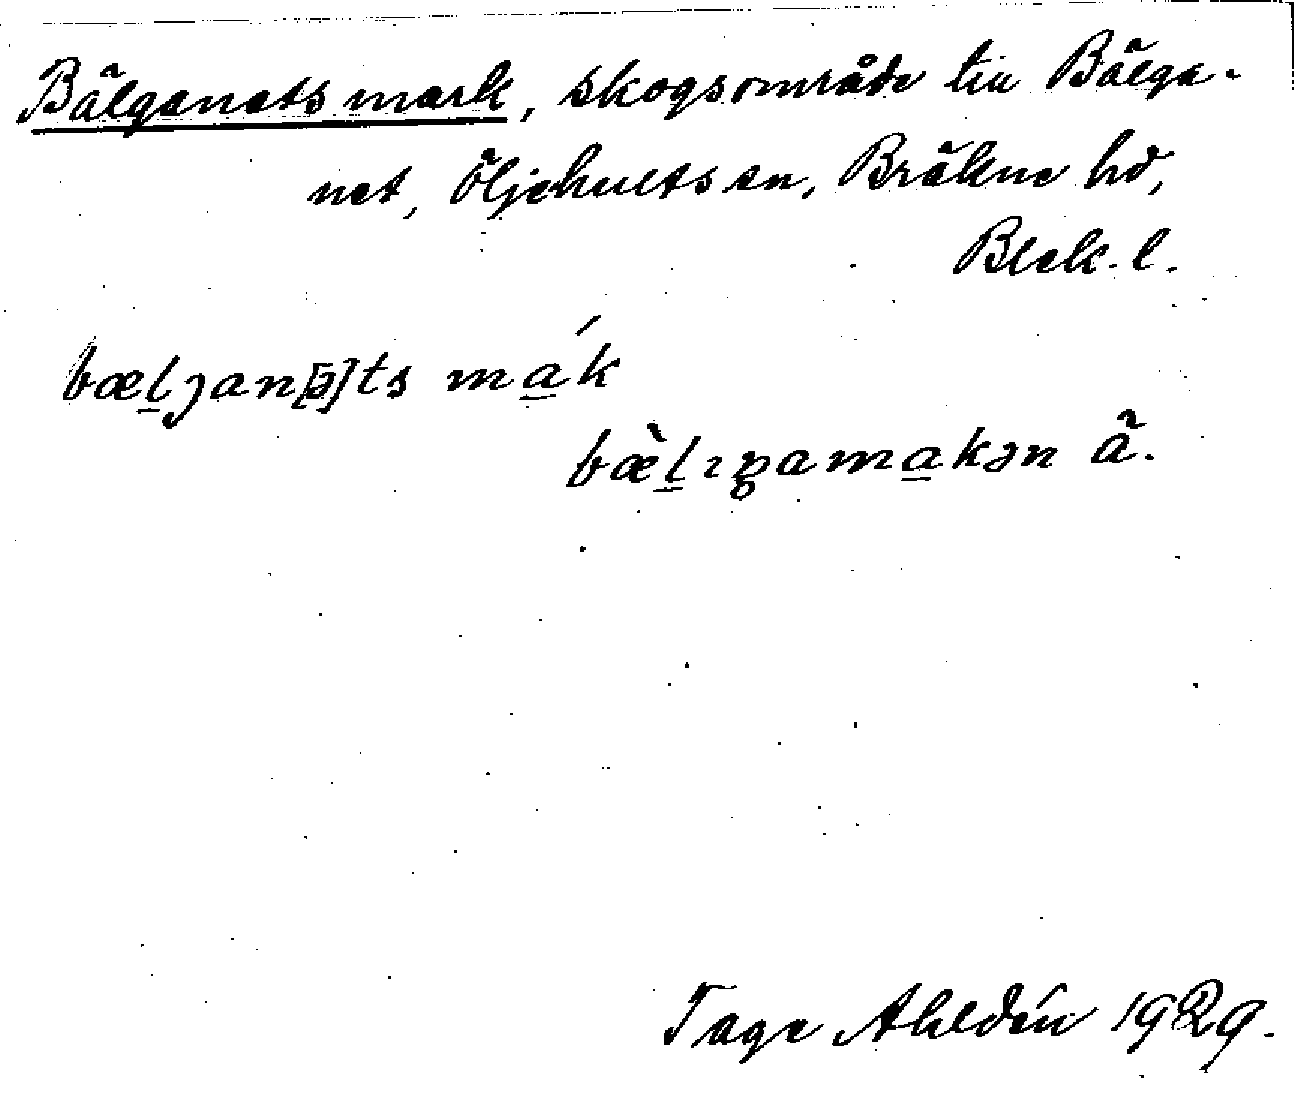 Bälganets mark, skogsområde till Bälga-
net, Öljehults sn, Bräkne hd,
Blek. l.
bæl̠ȷan[ə]ts ma̠´k
bæ̀l̠ıgama̠kən ã.
Tage Ahldén 1929.